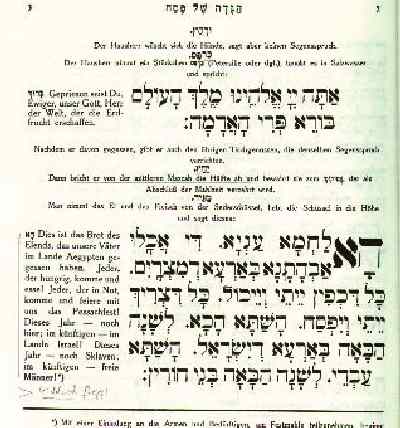 הגדה של פסח
ורחץ.
Der Hausherr wäscht sich die Hände, sagt aber keinen Segensspruch.
כרפס.
Der Hausherr nimmt ein Stückchen (Petersilie oder dgl.), taucht es in Salzwasser
und spricht:
Gepriesen seist Du,
Ewiger, unser Gott, Herr
der Welt, der die Erd-
frucht erschaffen.
אַתָּה יְיָ אֱלֹהֵינוּ מֶלֶךְ הָעוֹלָם
בּוֹרֵא פְּרִי הָאֲדָמָה:
Nachdem er davon gegessen, gibt er auch den übrigen Tischgenossen, die denselben Segensspruch
verrichten.
יחץ
Dann bricht er von der mittleren Mazzah die Hälfte ab und bewahrt sie zum die als
Abschluß der Mahlzeit verzehrt wird.
Man nimmt das Ei und den von der Sederschüssel, hebt die Schüssel in die Höhe
und sagt dieses:
Dies ist das Brot des
Elends, das unsere Väter
im Lande Aegypten ge-
gessen haben. Jeder,
der hungrig, komme und
esse! Jeder, der in Not,
komme und feiere mit
uns das Passachfest!
Dieses Jahr — noch
hier; im künftigen — im
Lande Israel! Dieses
Jahr — noch Sklaven;
im künftigen — freie
Männer!*)
הָא לַחְמָא עַנְיָא. דִּי אֲכָלוּ
אַבְהָתָנָא בְּאַרְעָא דְמִצְרָיִם.
כָּל דִּכְפִין יֵיתֵי וְיֵיכוֹל. כָּל דִּצְרִיךְ
יֵיתֵי וְיִפְסַח. הָשַׁתָּא הָכָא. לְשָׁנָה
הַבָּאָה בְּאַרְעָא דְיִשְׂרָאֵל. הָשַׁתָּא
עַבְדֵי. לְשָׁנָה הַבָּאָה בְּנֵי חוֹרִין:
*) Mit einer Einladung an die Armen und Bedürftigen, am Festmahle teilzunehmen,